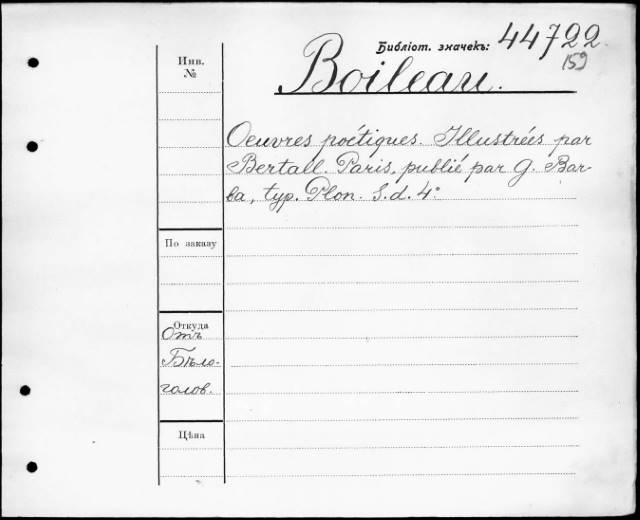 Библіот. значекъ: 44722
159
Boileau.
Инв.
№
Oeuvres poétiques. Illustrées par
Bertall. Paris, publié par G. Bar-
ba, typ. Plon. S.d. 4°
По заказу
Откуда
Отъ
Бѣло-
голов.
Цѣна